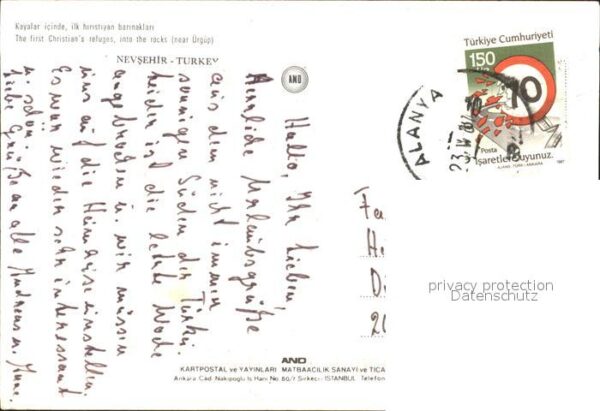 Kayalar içinde, ilk hıristiyan barınakları
The first Christian's refuges, into the rocks (near Ürgüp)
NEVŞEHİR - TURKEY
AND
Türkiye Cumhuriyeti
150
LİRA
10
Posta
İşaretlere uyunuz.
AJANS-TÜRK-ANKARA 1987
ALANYA
Hallo, Ihr Lieben,
Herzliche Urlaubsgrüße
aus dem nicht immer
sonnigen Süden der Türkei.
Leider ist die letzte Woche
angebrochen u. wir müssen
uns auf die Heimreise einstellen.
Es war wieder sehr interessant
u. schön.
Liebe Grüße an alle Andreas u. Anne
Fa
H
D
20
privacy protection
Datenschutz
AND
KARTPOSTAL ve YAYINLARI MATBAACILIK SANAYİ ve TİCA
Ankara Cad. Nakipoğlu İş Hanı No 80/7 Sirkeci - İSTANBUL Telefon